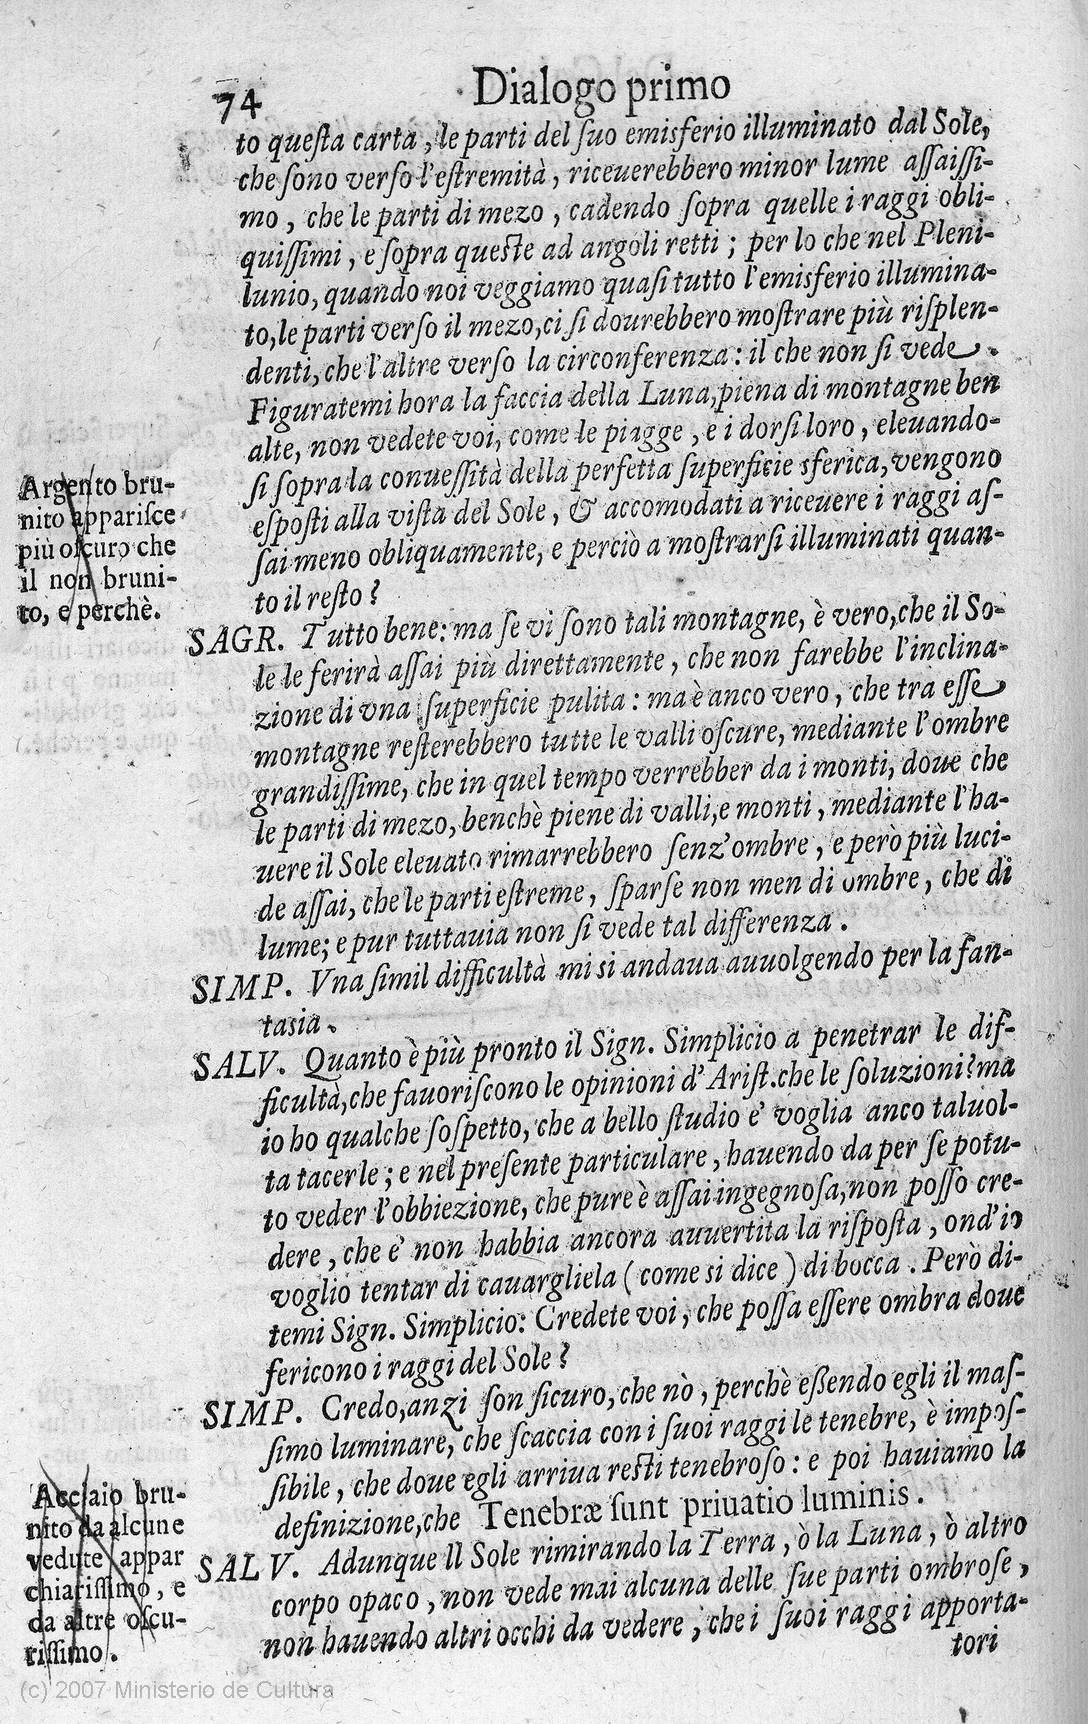 74
Dialogo primo
to queſta carta, le parti del ſuo emisferio illuminato dal Sole,
che ſono verſo l'eſtremità, riceuerebbero minor lume aſſaiſſi-
mo, che le parti di mezo, cadendo ſopra quelle i raggi obli-
quiſſimi, e ſopra queſte ad angoli retti; per lo che nel Pleni-
lunio, quando noi veggiamo quaſi tutto l'emisferio illumina-
to, le parti verſo il mezo, ci ſi dourebbero moſtrare più riſplen-
denti, che l'altre verſo la circonferenza: il che non ſi vede.
Figuratemi hora la faccia della Luna, piena di montagne ben
alte, non vedete voi, come le piagge, e i dorſi loro, eleuando-
ſi ſopra la conueſſità della perfetta ſuperficie sferica, vengono
eſpoſti alla viſta del Sole, & accomodati a riceuere i raggi aſ-
ſai meno obliquamente, e perciò a moſtrarſi illuminati quan-
to il reſto?
Argento bru-
nito appariſce
più oſcuro che
il non bruni-
to, e perchè.
SAGR. Tutto bene: ma ſe vi ſono tali montagne, è vero, che il So-
le le ferirà aſſai più direttamente, che non farebbe l'inclina-
zione di vna ſuperficie pulita: ma è anco vero, che tra eſſe
montagne reſterebbero tutte le valli oſcure, mediante l'ombre
grandiſſime, che in quel tempo verrebber da i monti, doue che
le parti di mezo, benchè piene di valli, e monti, mediante l'ha-
uere il Sole eleuato rimarrebbero ſenz'ombre, e però più luci-
de aſſai, che le parti eſtreme, ſparſe non men di ombre, che di
lume; e pur tuttauia non ſi vede tal differenza.
SIMP. Vna ſimil difficultà mi si andaua auuolgendo per la fan-
tasia.
SALV. Quanto è più pronto il Sign. Simplicio a penetrar le dif-
ficultà, che fauoriſcono le opinioni d'Ariſt. che le ſoluzioni? ma
io ho qualche ſoſpetto, che a bello ſtudio e' voglia anco taluol-
ta tacerle; e nel preſente particulare, hauendo da per ſe potu-
to veder l'obbiezione, che pure è aſſai ingegnoſa, non poſſo cre-
dere, che e' non habbia ancora auuertita la riſpoſta, ond'io
voglio tentar di cauargliela (come si dice) di bocca. Però di-
temi Sign. Simplicio: Credete voi, che poſſa eſſere ombra doue
fericono i raggi del Sole?
SIMP. Credo, anzi ſon ſicuro, che nò, perchè eſſendo egli il maſ-
ſimo luminare, che ſcaccia con i ſuoi raggi le tenebre, è impoſ-
ſibile, che doue egli arriua reſti tenebroſo: e poi hauiamo la
definizione, che Tenebræ ſunt priuatio luminis.
Acciaio bru-
nito da alcune
vedute appar
chiariſſimo, e
da altre oſcu-
riſſimo.
SALV. Adunque Il Sole rimirando la Terra, ò la Luna, ò altro
corpo opaco, non vede mai alcuna delle ſue parti ombroſe,
non hauendo altri occhi da vedere, che i ſuoi raggi apporta-
tori
(c) 2007 Ministerio de Cultura